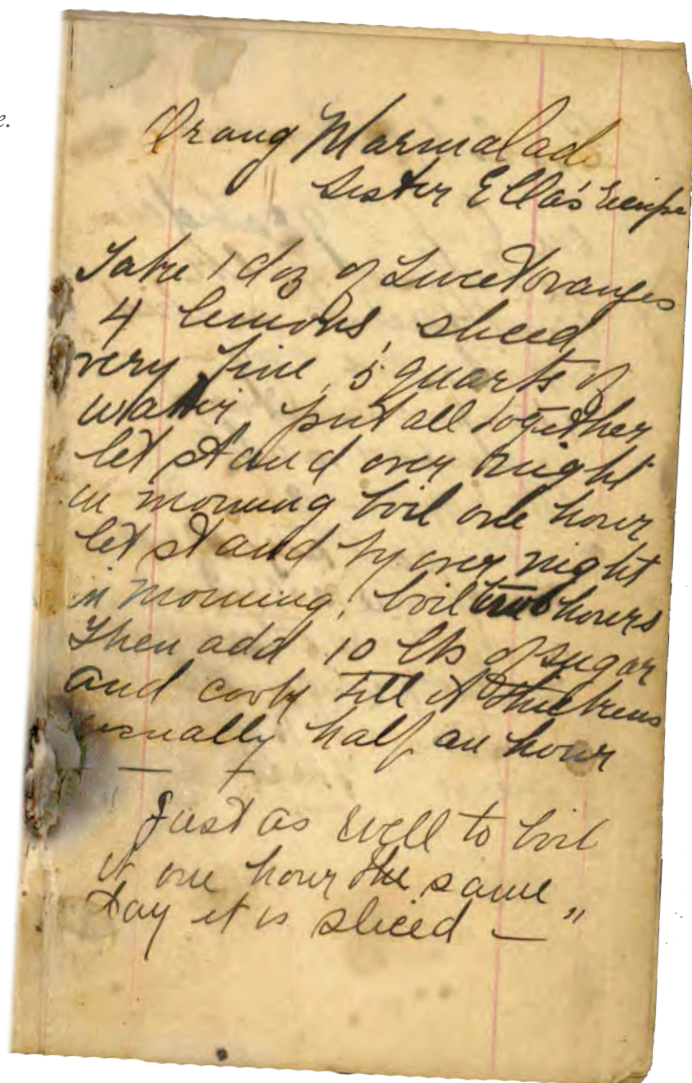 e.
Orang Marmalade
Sister Ella's Recipe
Take 1 doz of Sweet oranges
4 lemons, sliced
very fine, 5 quarts of
water put all together
let stand over night
in morning boil one hour
let stand over night
in morning, boil two hours
Then add 10 lbs of sugar
and cook till it thickens
usually half an hour
"Just as well to boil
it one hour the same
day it is sliced — "